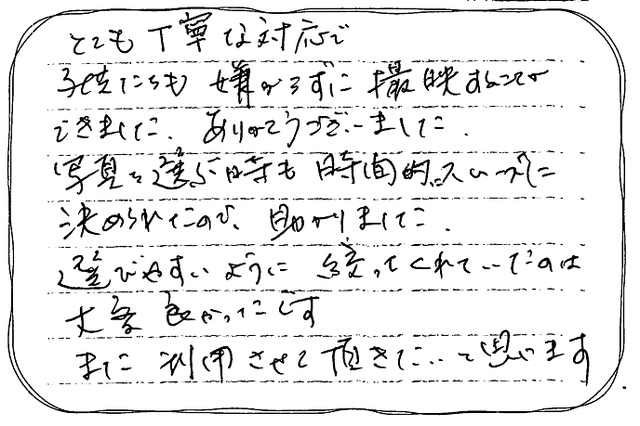 とても丁寧な対応で
子供たちも嫌がらずに撮影することが
できました。ありがとうございました。
写真を選ぶ時も時間的にスムーズに
決められたので、助かりました。
選びやすいように絞ってくれていたのは
大変良かったです
また利用させて頂きたいと思います